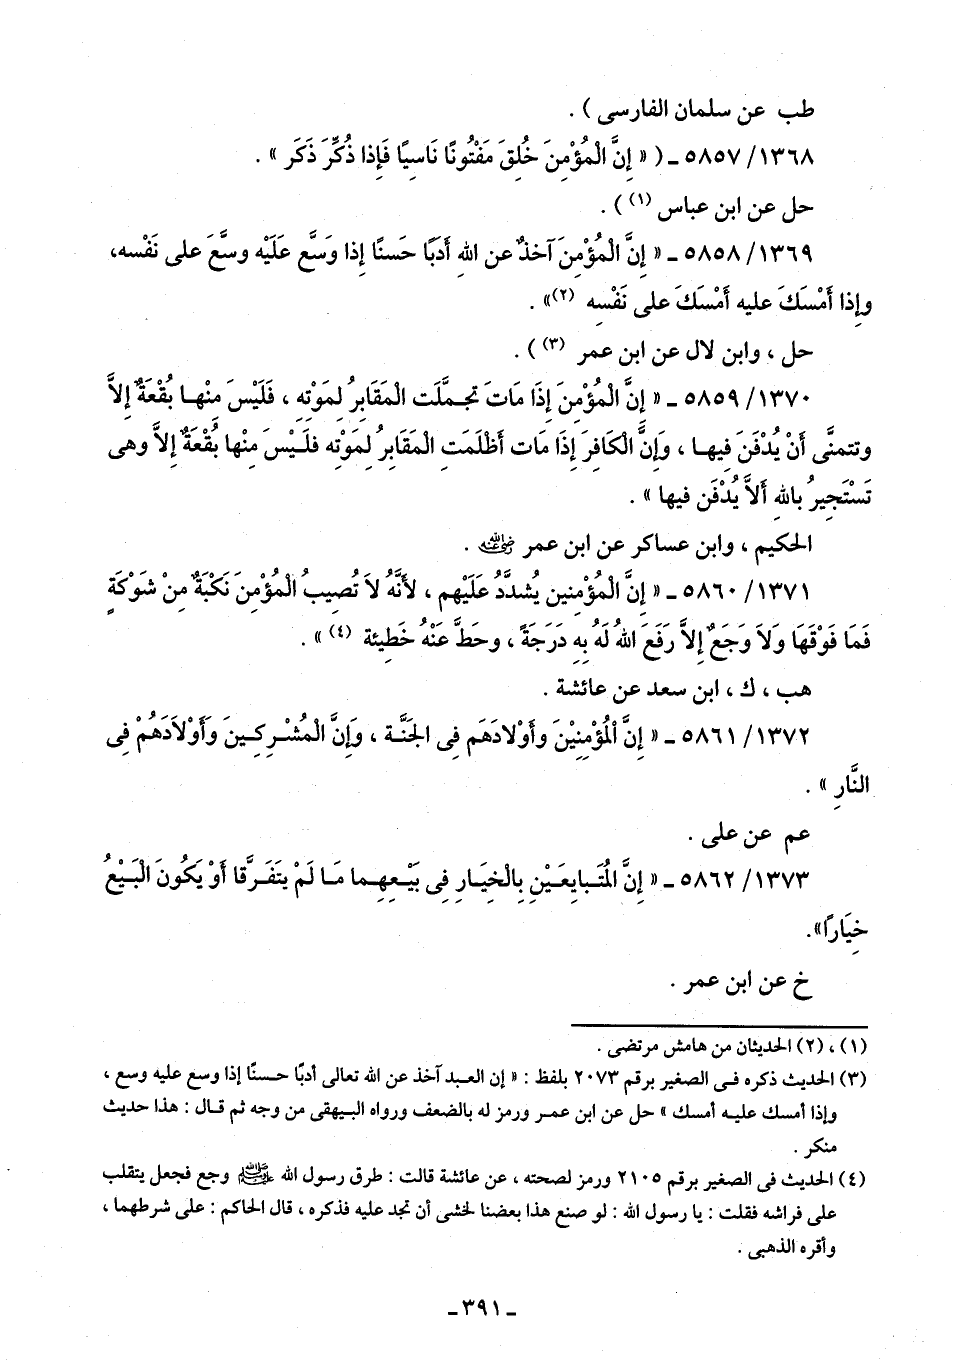 طب عن سلمان الفارسى ) .
١٣٦٨/ ٥٨٥٧ ـ ( « إِنَّ الْمُؤْمِنَ خُلِقَ مَفْتُونًا نَاسِيًا فَإِذا ذُكِّرَ ذَكَر » .
حل عن ابن عباس (١) ) .
١٣٦٩/ ٥٨٥٨ ـ « إِنَّ الْمُؤْمِنَ آخذٌ عن اللهِ أَدَبًا حَسنًا إِذا وَسَّع عَلَيْه وسَّعَ على نَفْسه،
وإِذا أَمْسَكَ عليه أَمْسَكَ على نَفْسِه (٢)» .
حل ، وابن لال عن ابن عمر (٣) ) .
١٣٧٠/ ٥٨٥٩ ـ « إِنَّ الْمُؤْمِنَ إِذَا مَاتَ تجمَّلَت الْمَقَابِرُ لِمَوْتِه ، فَلَيْسَ مِنْها بُقْعَةٌ إِلاَّ
وتتمنَّى أَنْ يُدْفَنَ فِيها ، وَإِنَّ الْكَافِرَ إِذَا مات أَظْلَمَتِ الْمَقَابِرُ لِمَوْتِه فلَيْسَ مِنْها بُقْعَةٌ إِلاَّ وهى
تَسْتَجِيرُ باللهِ أَلاَّ يُدْفَن فيها » .
الحكيم ، وابن عساكر عن ابن عمر رضي الله عنه .
١٣٧١/ ٥٨٦٠ ـ « إِنَّ الْمُؤْمِنين يُشدَّدُ عَلَيْهِم ، لأَنَّهُ لاَ تُصِيبُ الْمُؤْمِنَ نَكْبَةٌ مِنْ شَوْكَةٍ
فَمَا فَوْقَهَا وَلاَ وَجَعٌ إِلاَّ رَفَعَ اللهُ لَهُ بِهِ دَرَجَةً ، وحَطَّ عَنْهُ خَطِيئة (٤) » .
هب ، ك ، ابن سعد عن عائشة .
١٣٧٢/ ٥٨٦١ ـ « إِنَّ الْمُؤْمِنِيْنَ وأَوْلادَهَم فِى الجَنَّة ، وَإِنَّ الْمُشْرِكِينَ وَأَوْلاَدَهُمْ فِى
النَّارِ » .
عم عن على .
١٣٧٣/ ٥٨٦٢ ـ « إِنَّ الْمُتَبايِعَيْنِ بِالْخِيَارِ فِى بَيْعِهِما مَا لَمْ يتَفَرَّقا أَوْ يَكُونَ الْبَيْعُ
خِيَارًا».
خ عن ابن عمر .
(١) ، (٢) الحديثان من هامش مرتضى .
(٣) الحديث ذكره فى الصغير برقم ٢٠٧٣ بلفظ : « إن العبد آخذ عن الله تعالى أدبًا حسنًا إذا وسع عليه وسع ،
وإذا أمسك عليه أمسك » حل عن ابن عمر ورمز له بالضعف ورواه البيهقى من وجه ثم قال : هذا حديث
منكر .
(٤) الحديث فى الصغير برقم ٢١٠٥ ورمز لصحته ، عن عائشة قالت : طرق رسول الله ﷺ وجع فجعل يتقلب
على فراشه فقلت : يا رسول الله : لو صنع هذا بعضنا لخشى أن تجد عليه فذكره ، قال الحاكم : على شرطهما ،
وأقره الذهبى .
ـ ٣٩١ ـ